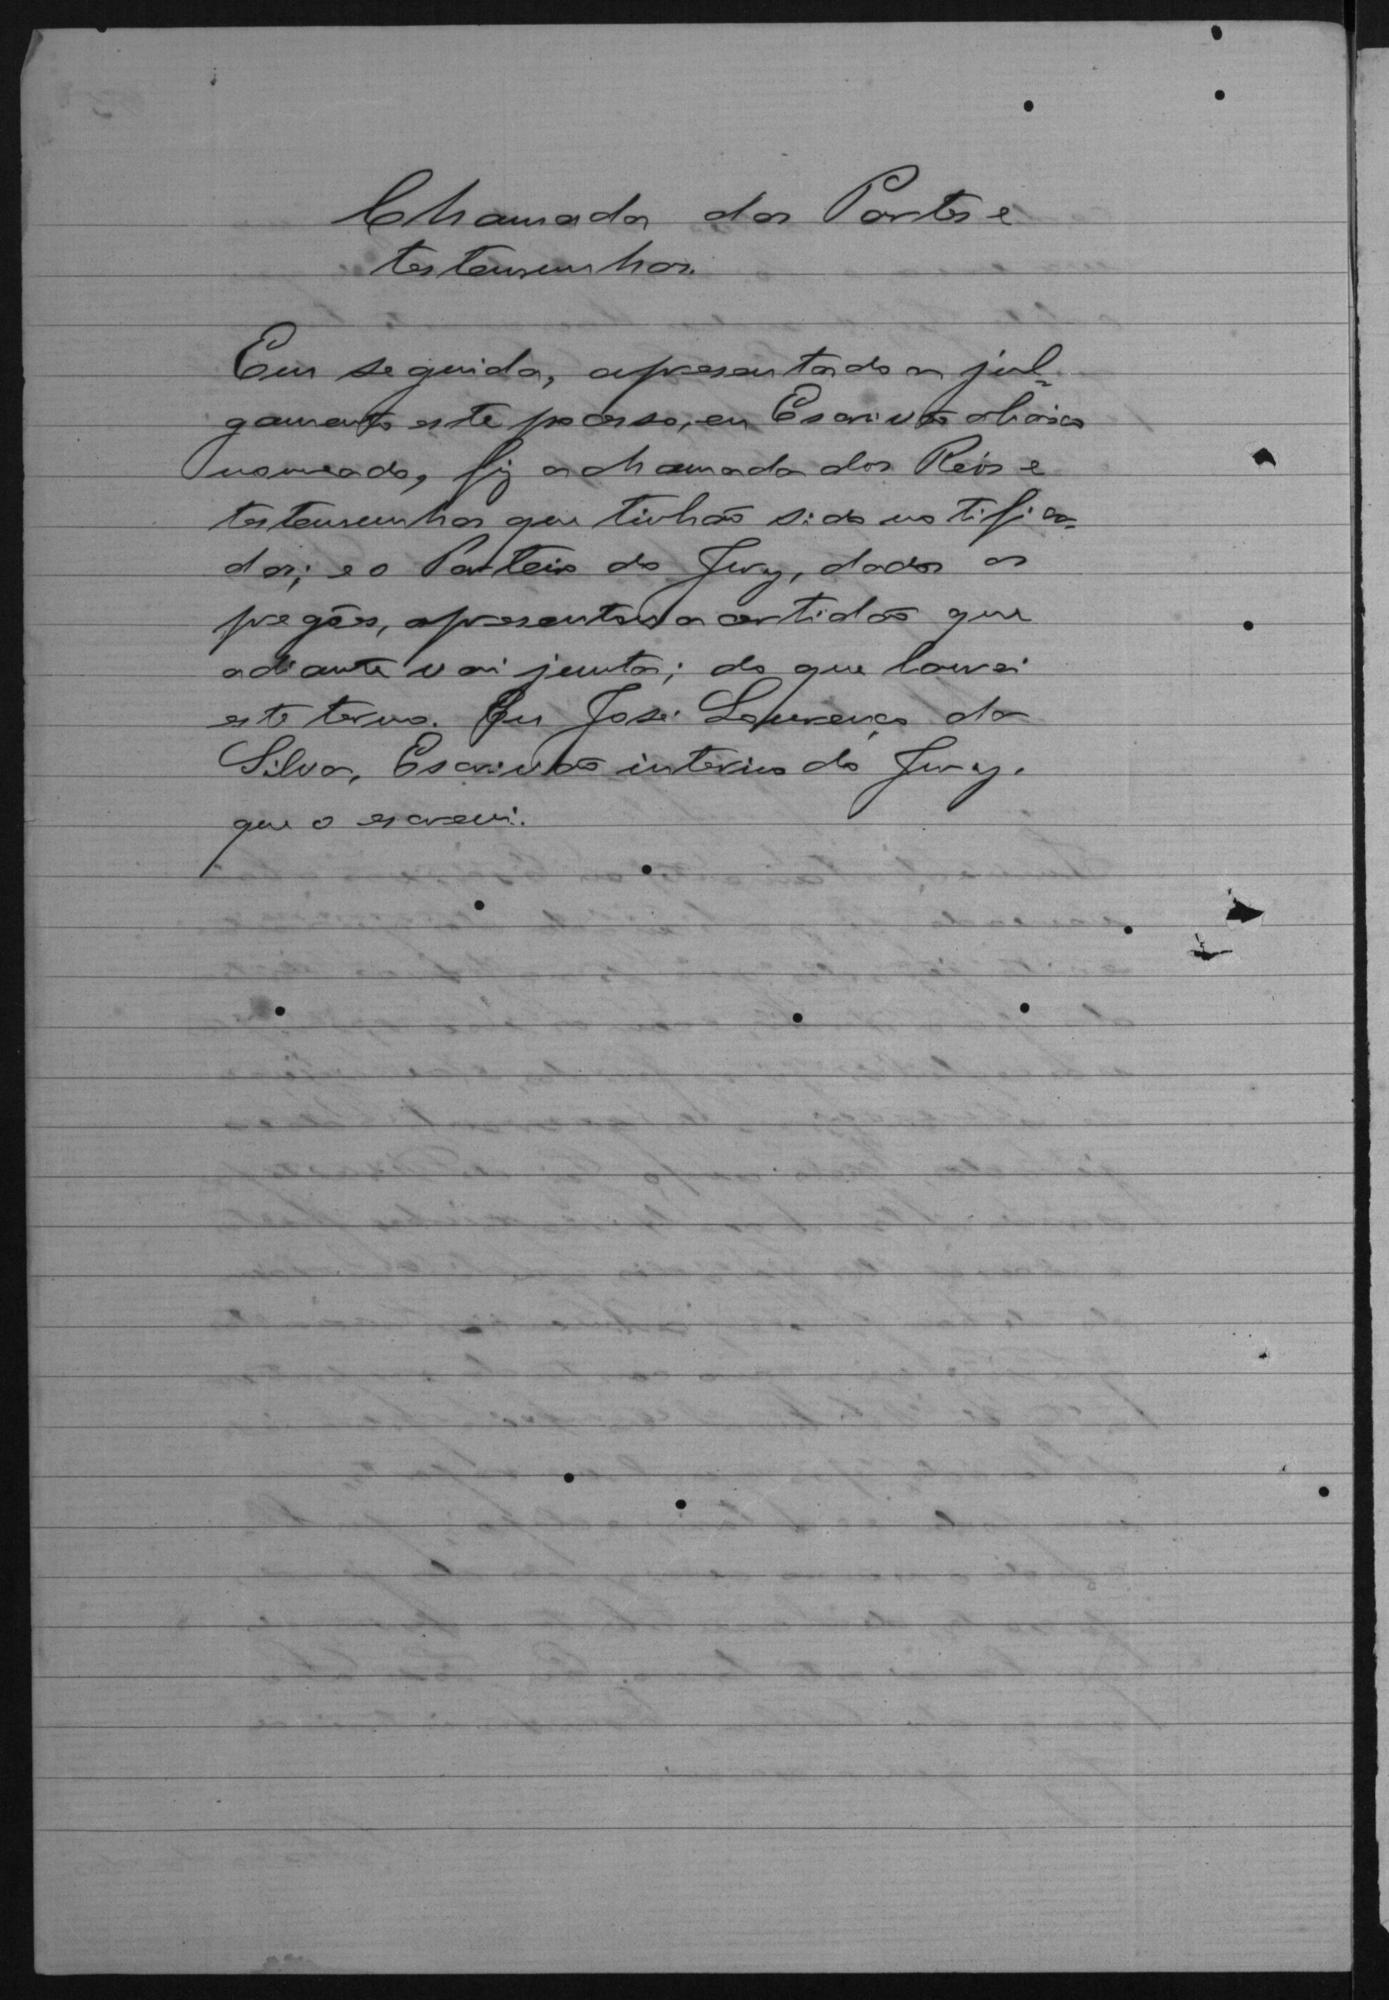 Chamada das Partes e
testemunhas.
Em seguida, apresentado a jul-
gamento este processo, eu Escrivão abaixo
nomeado, fiz a chamada dos Réos e
testemunhas que tinhão sido notifica-
das; e o Porteiro do Jury, dados os
pregões, apresentou a certidão que
adiante vai junta; do que lavrei
este termo. Eu José Lourenço da
Silva, Escrivão interino do Jury.
que o escrevi.